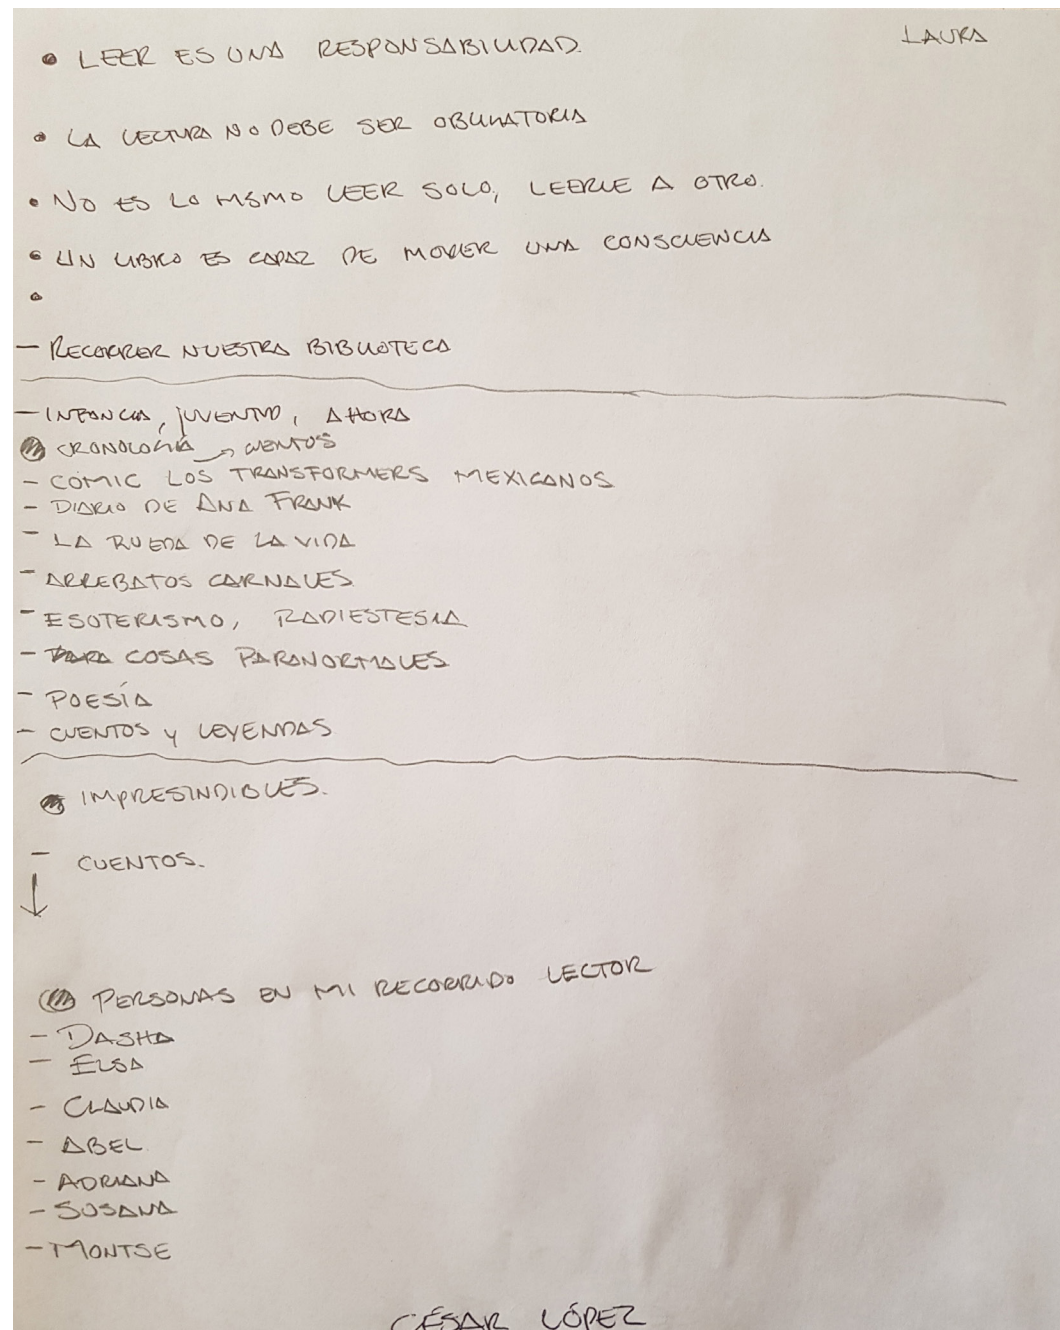 LAURA
• LEER ES UNA RESPONSABILIDAD.
• LA LECTURA NO DEBE SER OBLIGATORIA
• NO ES LO MISMO LEER SOLO, LEERLE A OTRO.
• UN LIBRO ES CAPAZ DE MOVER UNA CONSCIENCIA
•
— RECORRER NUESTRA BIBLIOTECA
— INFANCIA, JUVENTUD, AHORA
• CRONOLOGÍA → CUENTOS
- CÓMIC LOS TRANSFORMERS MEXICANOS
- DIARIO DE ANA FRANK
- LA RUEDA DE LA VIDA
- ARREBATOS CARNALES
- ESOTERISMO, RADIESTESIA
- COSAS PARANORMALES
- POESÍA
- CUENTOS Y LEYENDAS
• IMPRESINDIBLES.
- CUENTOS.
↓
• PERSONAS EN MI RECORRIDO LECTOR
- DASHA
- ELSA
- CLAUDIA
- ABEL
- ADRIANA
- SUSANA
- MONTSE
CÉSAR LÓPEZ